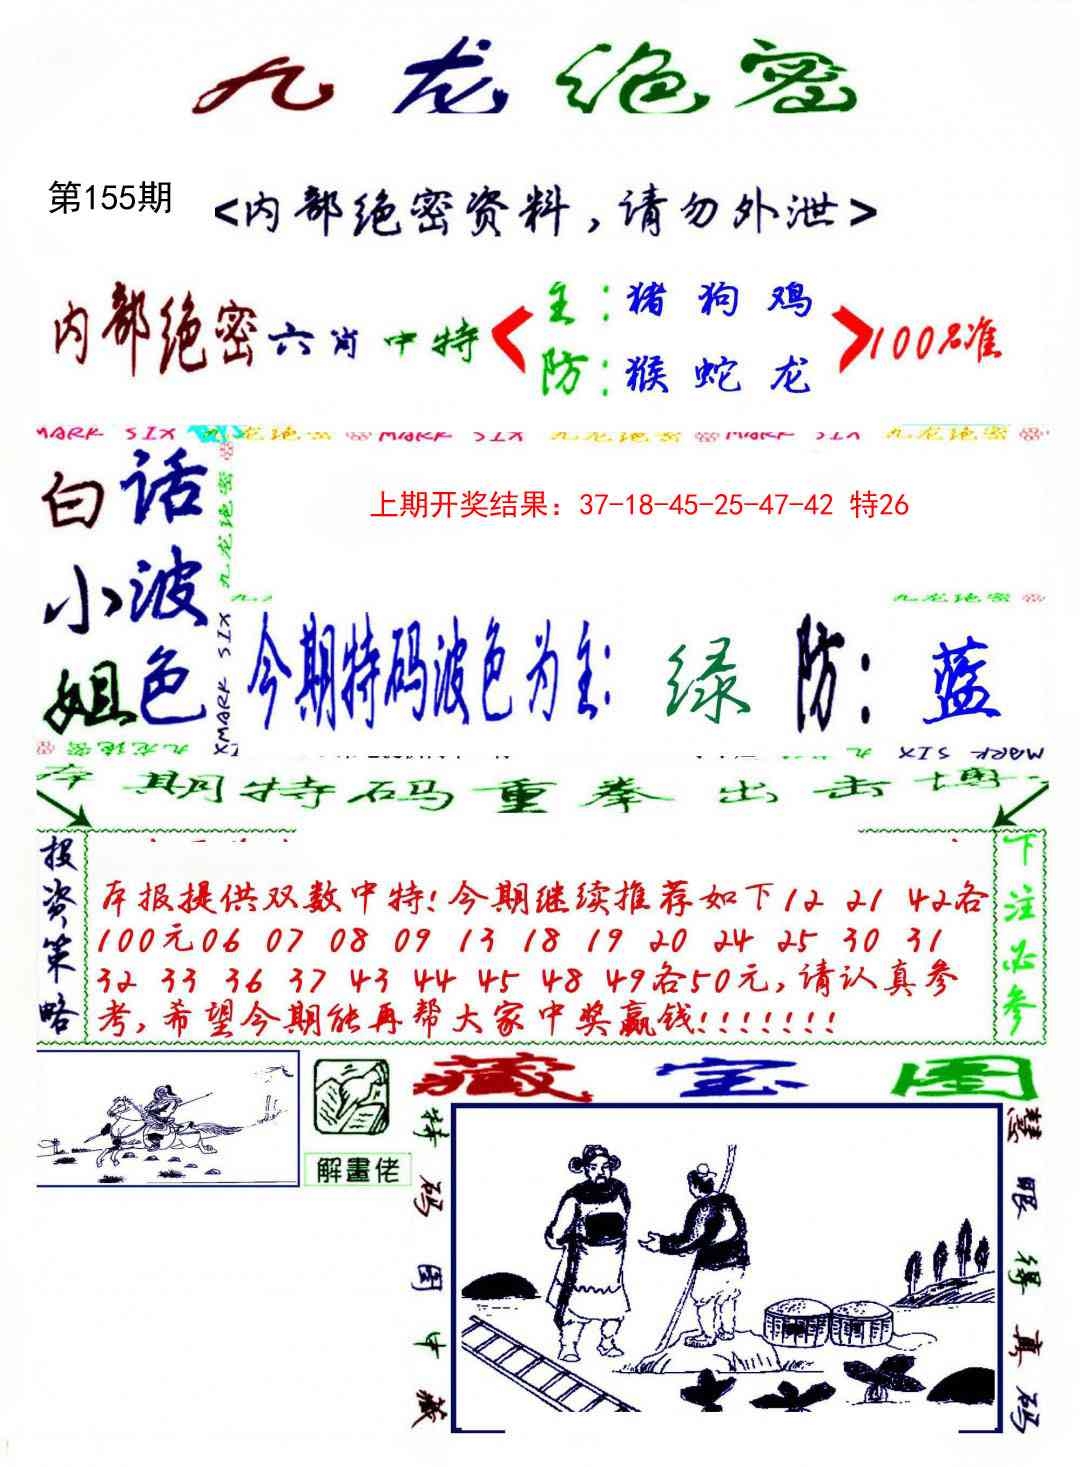 九龙绝密
第155期
<内部绝密资料,请勿外泄>
内部绝密六肖中特
主:猪狗鸡
防:猴蛇龙
100%准
MARK SIX 九龙绝密 MARK SIX 九龙绝密 MARK SIX 九龙绝密
白小姐
话波色
九龙绝密
MARK SIX
上期开奖结果：37-18-45-25-47-42 特26
九龙绝密
今期特码波色为主:绿 防:蓝
九龙绝密
MARK SIX
本期特码重拳出击博
投资策略
本报提供双数中特!今期继续推荐如下12 21 42各
100元06 07 08 09 13 18 19 20 24 25 30 31
32 33 36 37 43 44 45 48 49各50元,请认真参
考,希望今期能再帮大家中奖赢钱!!!!!!!
下注必参
解畫佬
藏宝图
特码图中藏
慧眼得真码